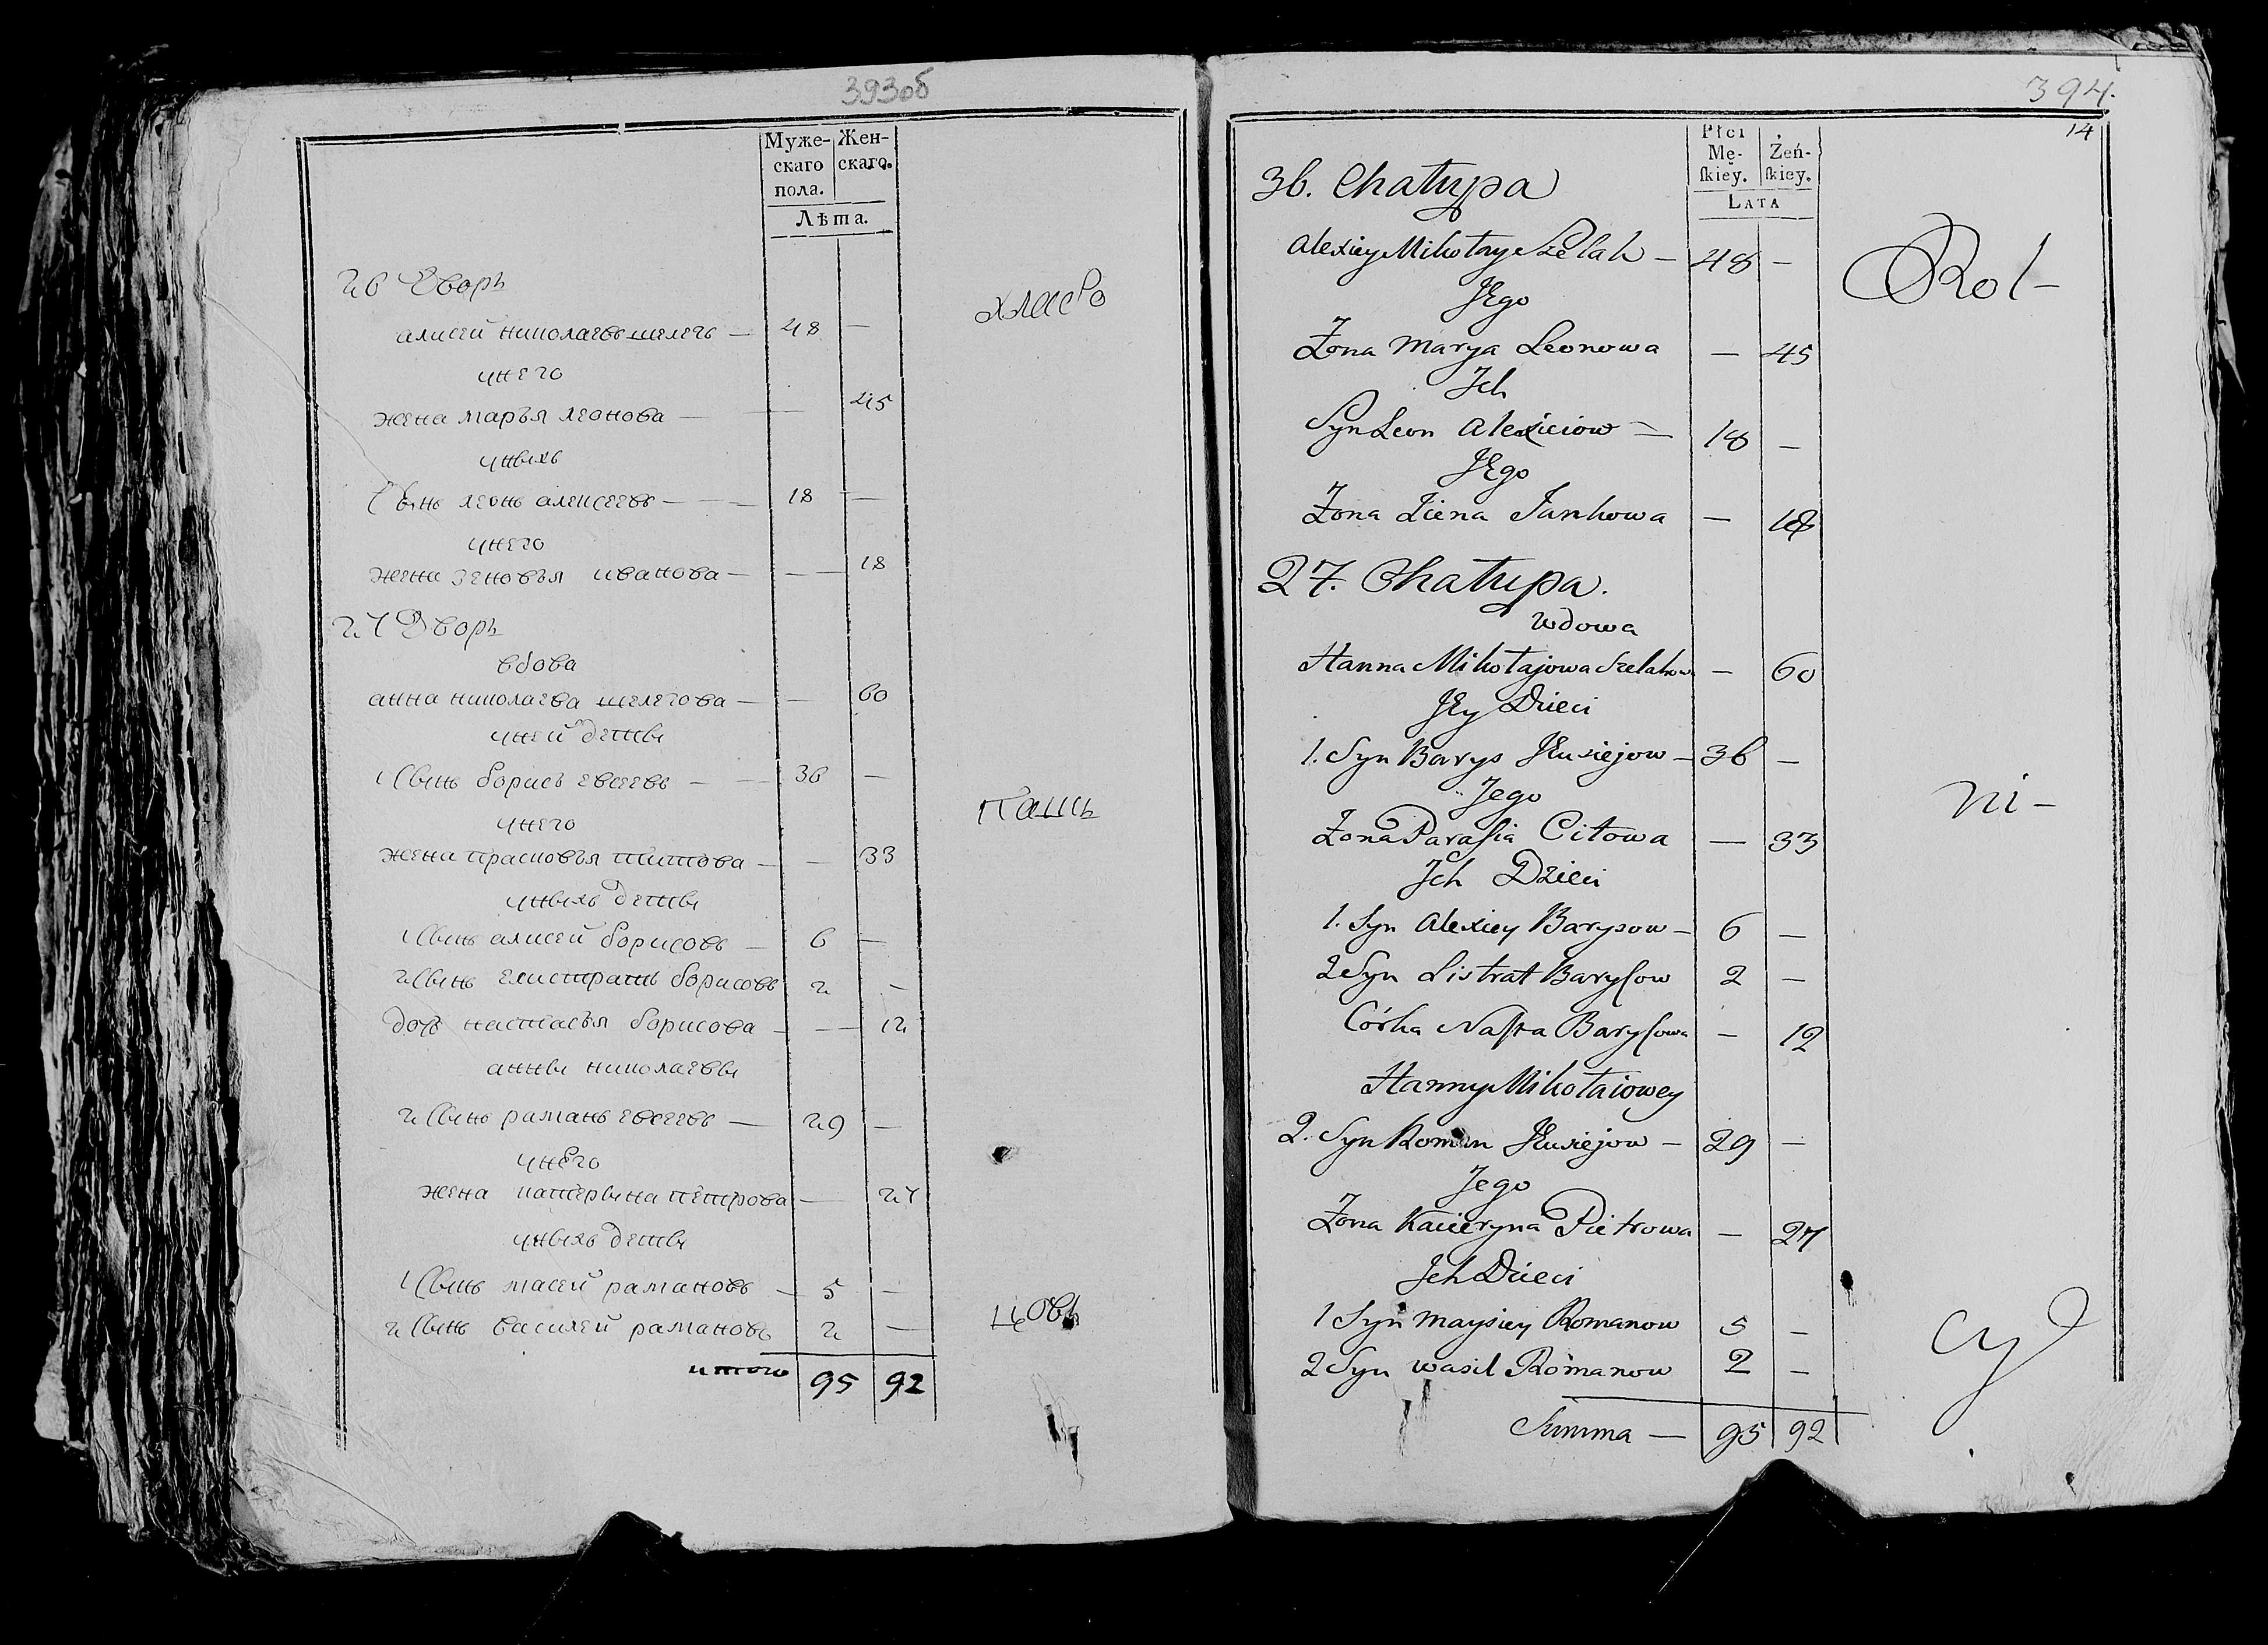 393об
Муже-
скаго
пола.
Жен-
скаго.
Лѣта.
26 Дворъ
алисей николаевъ шелегъ — 48 —
унего
жена марья леонова — — 45
уныхъ
Сынъ леонъ алексеевъ — 18 —
унего
жена зеновья иванова — — 18
27 Дворъ
вдова
анна николаева шелегова — — 60
уней дѣти
1 Сынъ борисъ евсеевъ — 36 —
унего
жена прасковья титова — — 33
уныхъ дети
1 Сынъ алисей борисовъ — 6 —
2 Сынъ елистратъ борисовъ 2 —
дочь настасья борисова — — 12
анны николаевы
2 Сынъ раманъ евсеевъ — 29 —
унего
жена катерына петрова — 27
уныхъ дети
1 Сынъ масей рамановъ — 5 —
2 Сынъ василей рамановъ 2 —
итого 95 92
хлебо
паш
цовъ
394.
14
Płci
Mę-
skiey.
Żeń-
skiey.
LATA
36. Chałupa
Alexiey Mikołay Szelah — 48 —
JEgo
Żona Marya Leonowa — 45
Jch
Syn Leon Alexieiow — 18 —
JEgo
Żona Ziena Jankowa — 18
27. Chałupa.
wdowa
Hanna Mikołajowa Szelahow — 60
JEy Dzieci
1. Syn Barys JEusiejow — 36 —
Jego
Żona Parasia Citowa — 33
Jch Dzieci
1. Syn Alexiey Barysow — 6 —
2 Syn Listrat Barysow 2 —
Córka Nasta Barysowa — 12
Hanny Mikołaiowey
2. Syn Roman JEusiejow — 29 —
Jego
Żona Kacieryna Pietrowa — 27
Jch Dzieci
1 Syn Maysiey Romanow 5 —
2 Syn wasil Romanow 2 —
Summa — 95 92
Rol-
ni-
cy